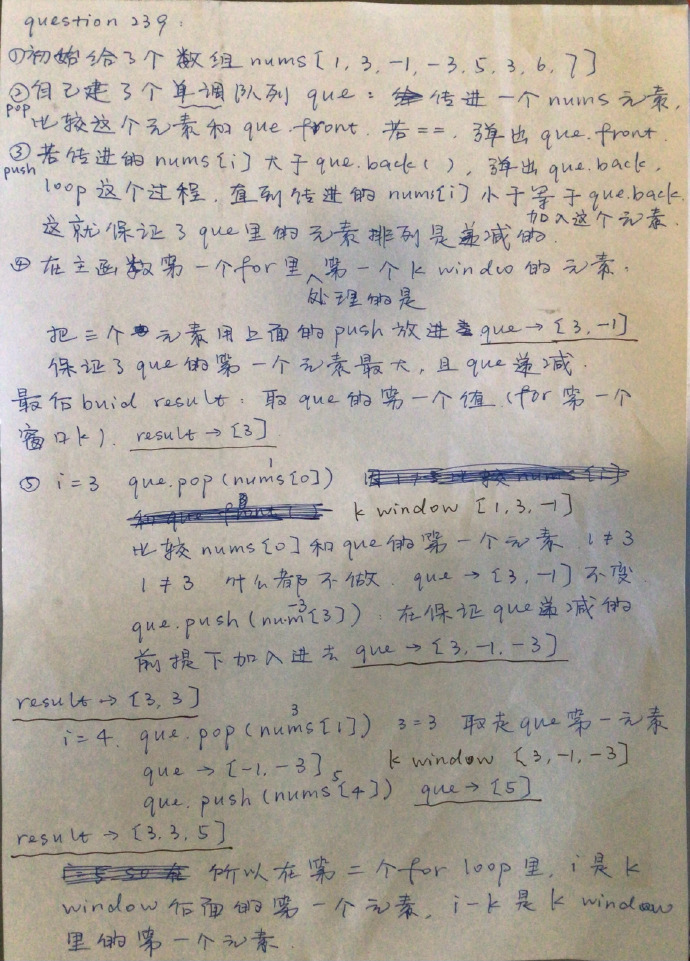 question 239:
①初始给了个数组 nums [1, 3, -1, -3, 5, 3, 6, 7]
②自己建了个单调队列 que: 传进一个 nums 元素,
pop
比较这个元素和 que.front. 若 ==, 弹出 que.front.
③若传进的 nums[i] 大于 que.back(), 弹出 que.back,
push
loop 这个过程, 直到传进的 nums[i] 小于等于 que.back
加入这个元素.
这就保证了 que 里的元素排列是递减的.
④在主函数第一个 for 里 第一个 k windlo 的元素.
处理的是
把三个元素用上面的 push 放进 que → [3, -1]
保证了 que 的第一个元素最大, 且 que 递减.
最后 buid result: 取 que 的第一个值 (for 第一个
窗口k). result → [3]
1
⑤ i = 3 que.pop(nums[0])
k window [1, 3, -1]
比较 nums[0] 和 que 的第一个元素. 1 ≠ 3
1 ≠ 3 什么都不做. que → [3, -1] 不变
-3
que.push(num[3]). 在保证 que 递减的
前提下加入进去 que → [3, -1, -3]
result → [3, 3]
3
i = 4. que.pop(nums[1]) 3 = 3 取走 que 第一元素
que → [-1, -3] k window [3, -1, -3]
5
que.push(nums[4]) que → [5]
result → [3, 3, 5]
所以在第二个 for loop 里, i 是 k
window 后面的第一个元素, i-k 是 k window
里的第一个元素.